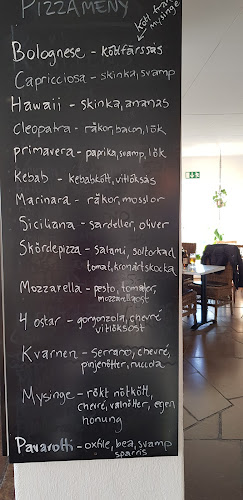 PIZZAMENY
kött från
mysinge
Bolognese - köttfärssås
Capricciosa - skinka, svamp
Hawaii - skinka, ananas
Cleopatra - räkor, bacon, lök
primavera - paprika, svamp, lök
Kebab - kebabkött, vitlökssås
Marinara - räkor, musslor
Siciliana - sardeller, oliver
Skördepizza - salami, soltorkad
tomat, kronärtskocka
Mozzarella - pesto, tomater,
mozzarellaost
4 ostar - gorgonzola, chevré
vitlöksost
Kvarnen - Serrano, chevré,
pinjenötter, ruccola
Mysinge - rökt nötkött,
chevré, valnötter, egen
honung
Pavarotti - oxfile, bea, svamp
sparris